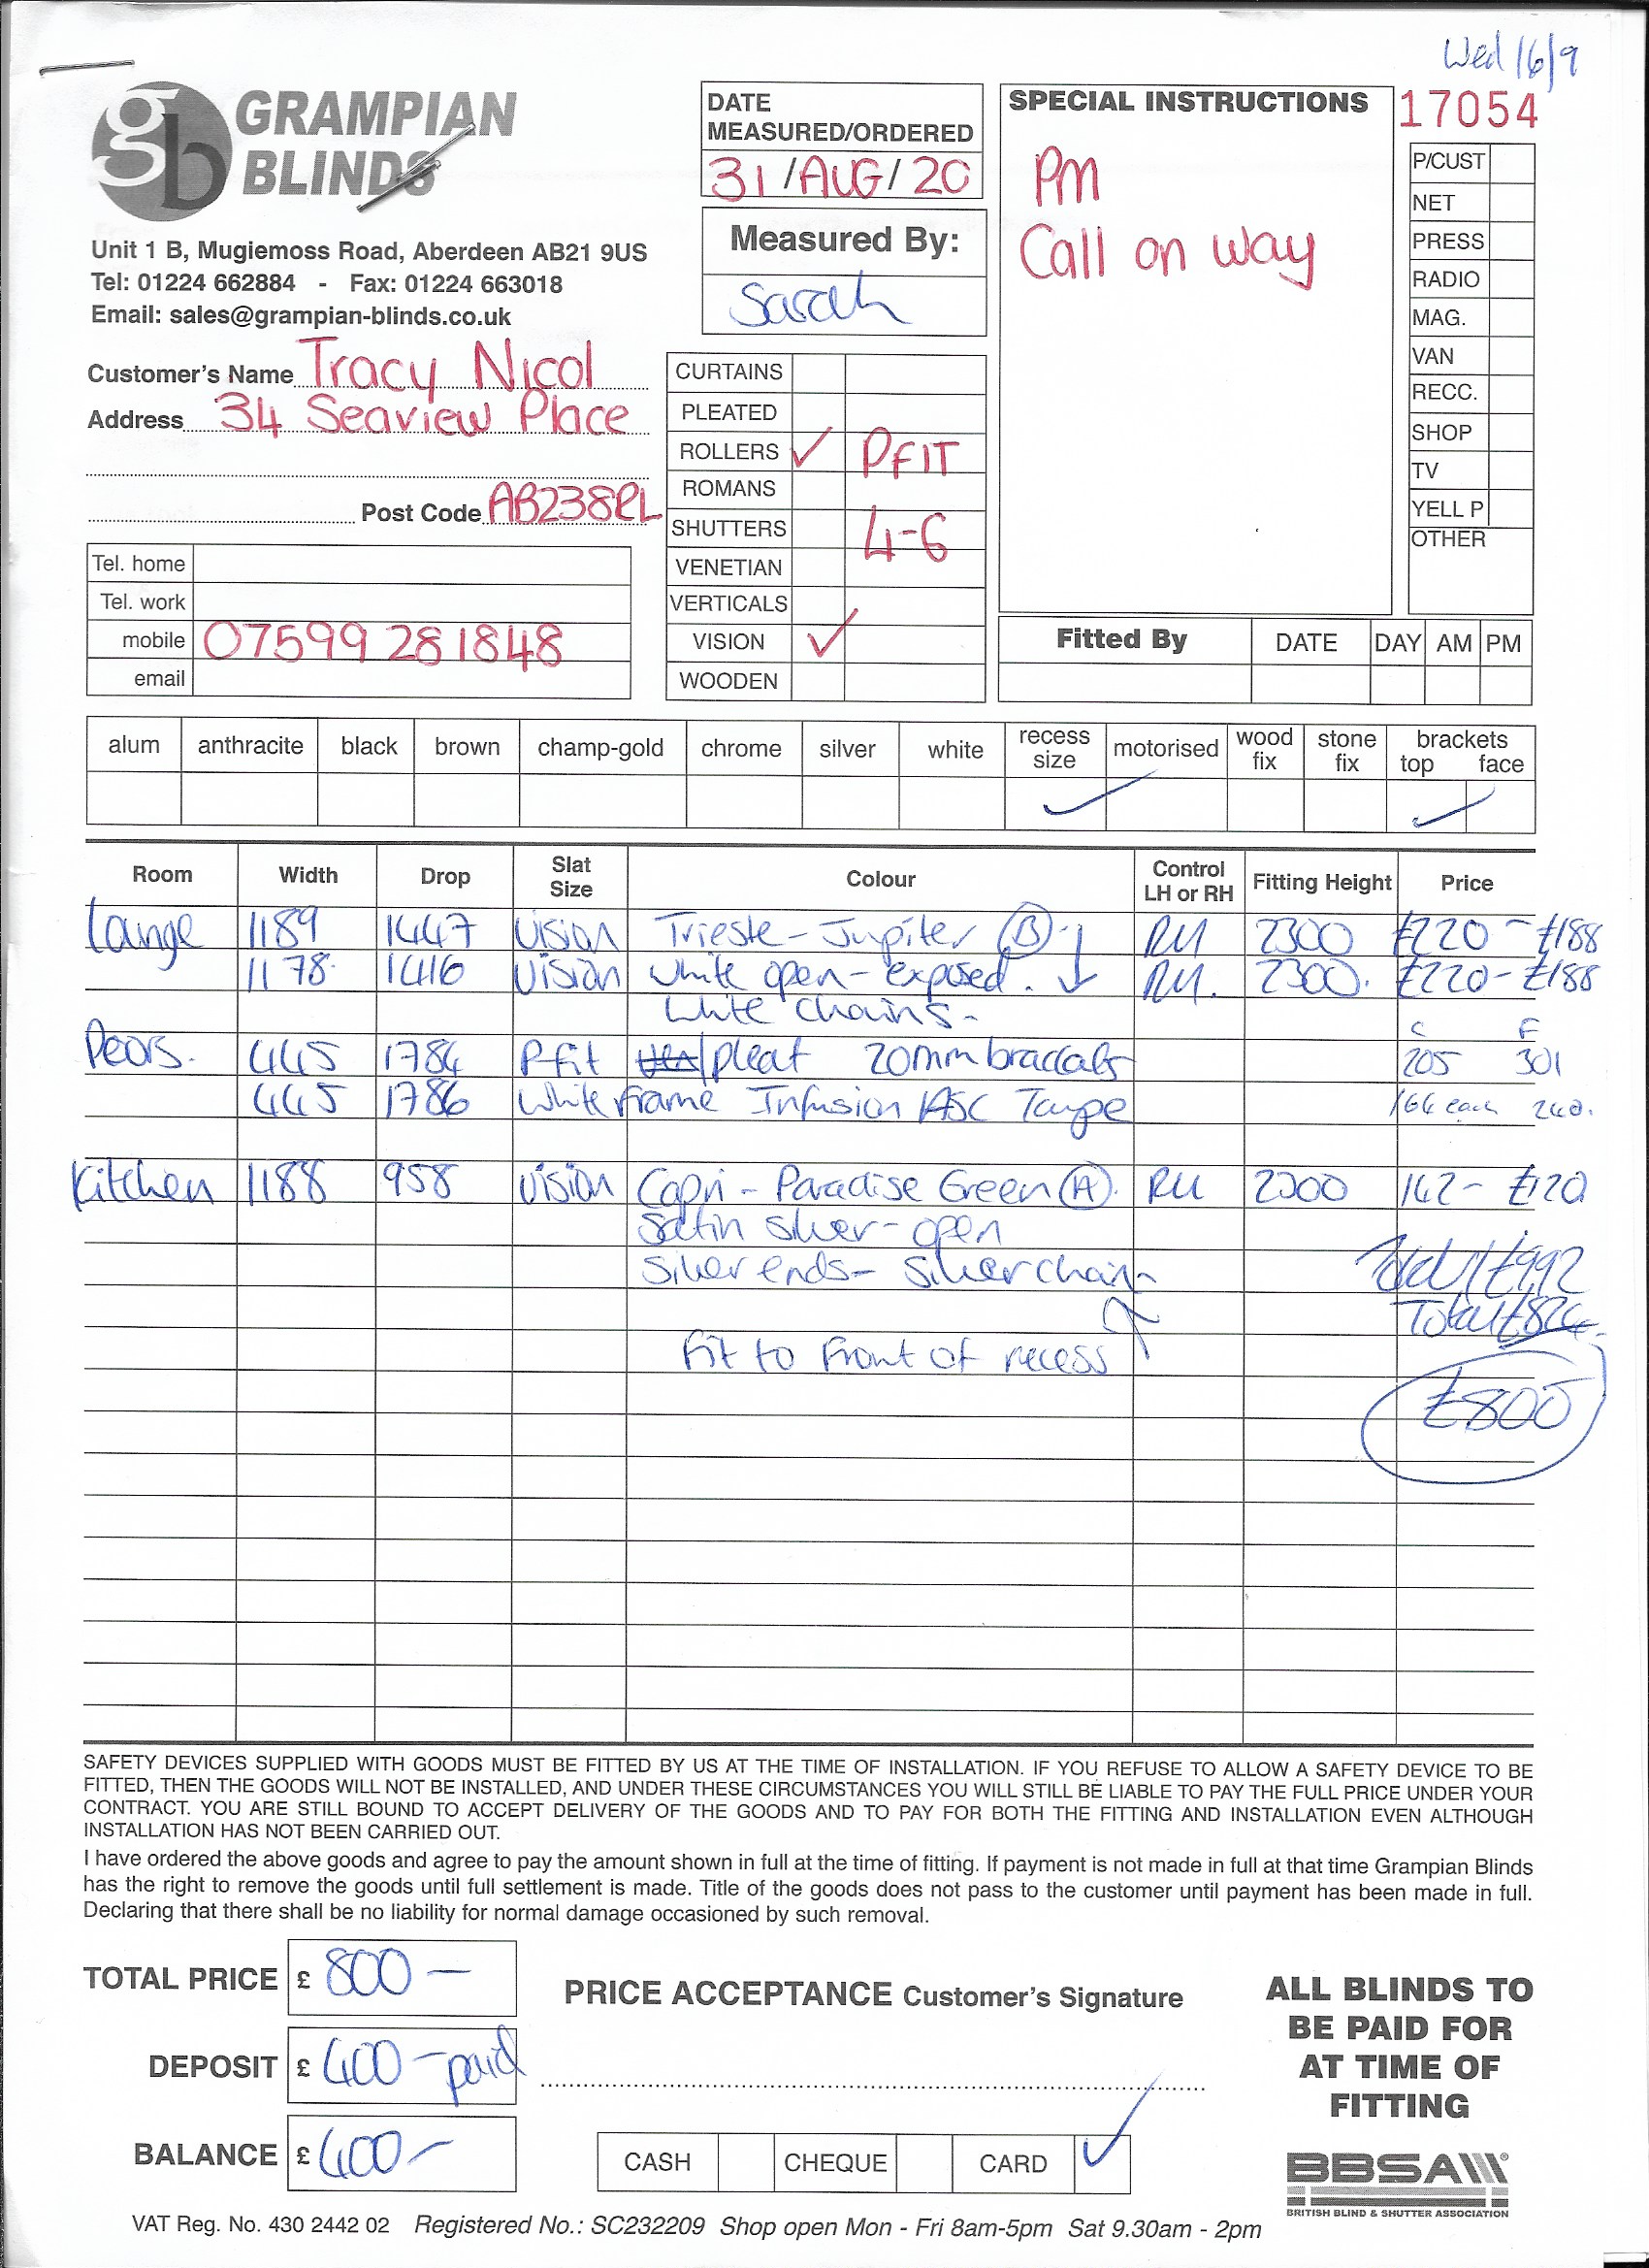 Wed 16/9
gb GRAMPIAN BLINDS
Unit 1 B, Mugiemoss Road, Aberdeen AB21 9US
Tel: 01224 662884 - Fax: 01224 663018
Email: sales@grampian-blinds.co.uk
DATE MEASURED/ORDERED
31/AUG/20
Measured By:
Sarah
SPECIAL INSTRUCTIONS
Pm
Call on way
17054
P/CUST
NET
PRESS
RADIO
MAG.
VAN
RECC.
SHOP
TV
YELL P
OTHER
Customer's Name Tracy Nicol
Address 34 Seaview Place
Post Code AB238RL
Tel. home
Tel. work
mobile 07599 281848
email
CURTAINS
PLEATED
ROLLERS ✓ PFIT
ROMANS
SHUTTERS 4-6
VENETIAN
VERTICALS
VISION ✓
WOODEN
Fitted By DATE DAY AM PM
alum anthracite black brown champ-gold chrome silver white recess size motorised wood fix stone fix brackets top face
✓ ✓
Room Width Drop Slat Size Colour Control LH or RH Fitting Height Price
Lounge 1189 1447 Vision Trieste - Jupiter (B) ↓ RH 2300 £220 - £188
1178 1416 Vision White open - exposed. RH. 2300. £220 - £188
White chains -
C F
Doors. 445 1784 Pfit pleat 20mm brackets 205 301
445 1786 White frame Infusion ASC Taupe 164 each 240.
Kitchen 1188 958 Vision Capri - Paradise Green (A). RH 2300 142 - £120
Satin silver - open
Silver ends - silver chain
Total £992
Total £824.
Fit to front of recess
£800
SAFETY DEVICES SUPPLIED WITH GOODS MUST BE FITTED BY US AT THE TIME OF INSTALLATION. IF YOU REFUSE TO ALLOW A SAFETY DEVICE TO BE
FITTED, THEN THE GOODS WILL NOT BE INSTALLED, AND UNDER THESE CIRCUMSTANCES YOU WILL STILL BE LIABLE TO PAY THE FULL PRICE UNDER YOUR
CONTRACT. YOU ARE STILL BOUND TO ACCEPT DELIVERY OF THE GOODS AND TO PAY FOR BOTH THE FITTING AND INSTALLATION EVEN ALTHOUGH
INSTALLATION HAS NOT BEEN CARRIED OUT.
I have ordered the above goods and agree to pay the amount shown in full at the time of fitting. If payment is not made in full at that time Grampian Blinds
has the right to remove the goods until full settlement is made. Title of the goods does not pass to the customer until payment has been made in full.
Declaring that there shall be no liability for normal damage occasioned by such removal.
TOTAL PRICE £ 800 -
DEPOSIT £ 400 - paid
BALANCE £ 400 -
PRICE ACCEPTANCE Customer's Signature
CASH CHEQUE CARD ✓
ALL BLINDS TO
BE PAID FOR
AT TIME OF
FITTING
BBSA
BRITISH BLIND & SHUTTER ASSOCIATION
VAT Reg. No. 430 2442 02 Registered No.: SC232209 Shop open Mon - Fri 8am-5pm Sat 9.30am - 2pm